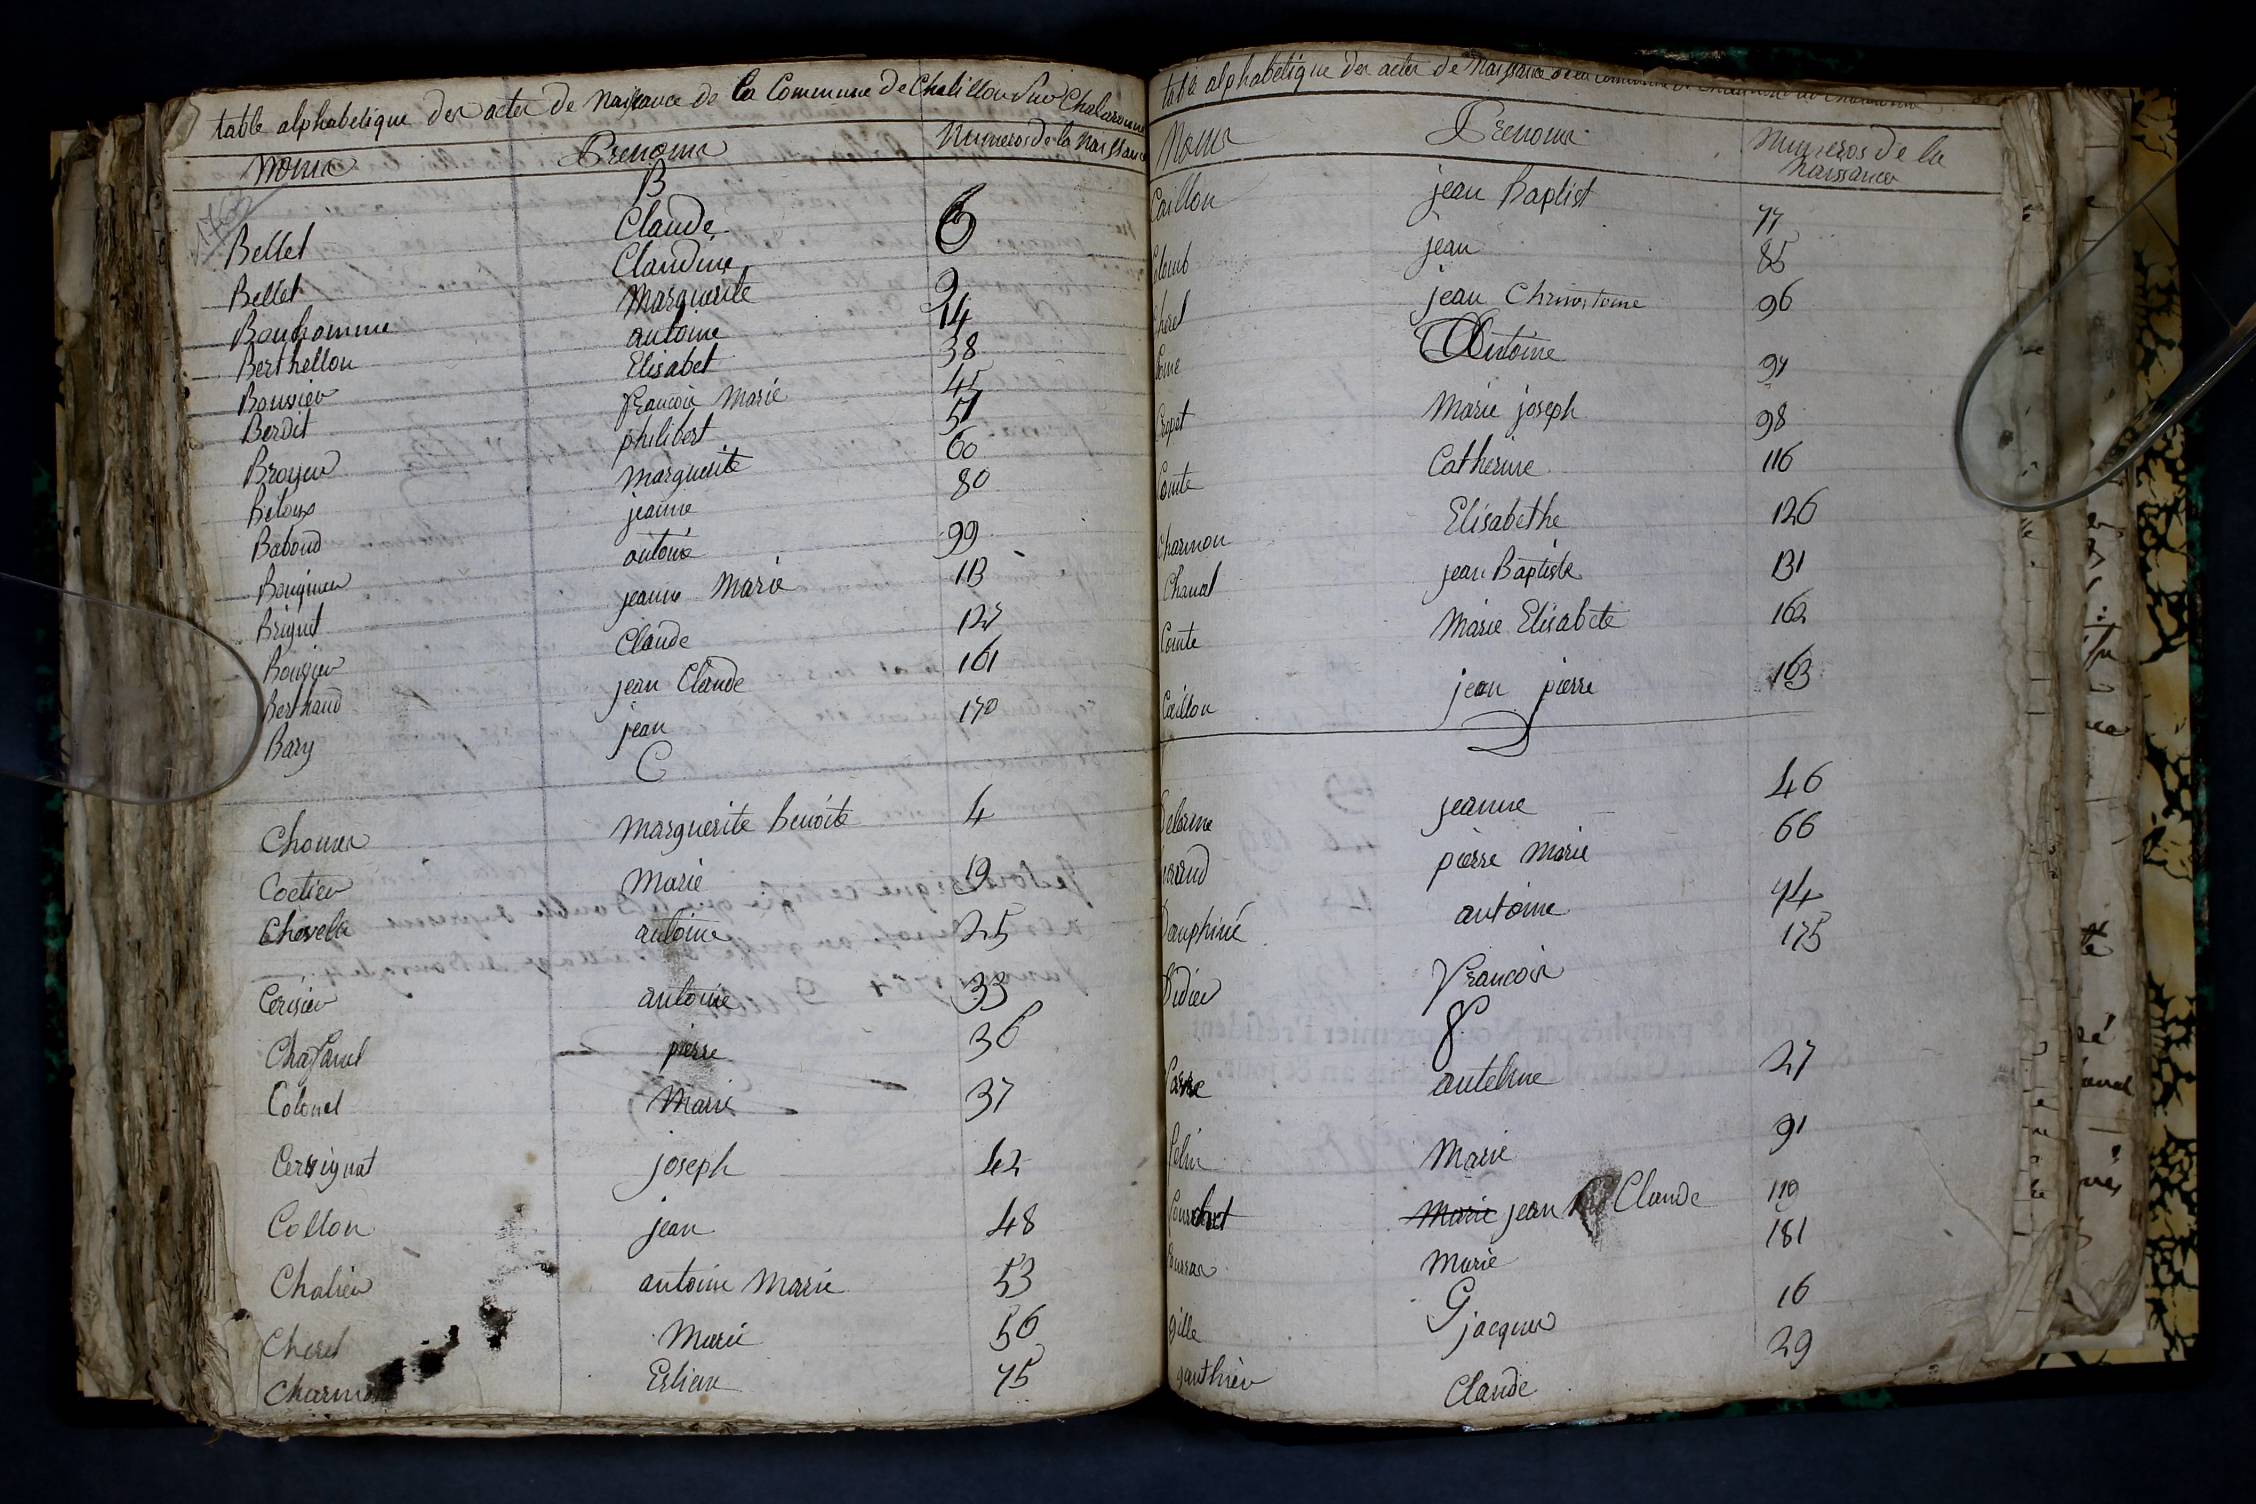 table alphabetique des actes de Naissance de la Commune de Chatillon Sur Chalaronne
Noms Prenoms Numeros de la Naissance
B
Bellet Claude 6
Bellet Claudine 9
Bonhomme Marguerite 14
Berthellon antoine 38
Boussier Elisabet 45
Berdit francois Marie 51
Broyer philibert 60
Beloux Marguerite 80
Baboud jeanne 99
antoine 113
Briguet jeanne Marie 127
Bouvier Claude 161
Berthaud jean Claude 170
Bary jean
C
Marguerite benoite 4
Marie 19
Chevelle antoine 25
Cerisier antoine 33
Chafanel pierre 36
Colonel Marie 37
Cersignat joseph 42
Collon jean 48
Chalier antoine Marie 53
Cheret Marie 56
Charmon Estiene 75
table alphabetique des actes de Naissance de la Commune de Chatillon sur Chalaronne
Noms Prenoms Numeros de la Naissance
Caillon jean Baptist 77
Colomb jean 85
Cheret jean 96
Come Antoine 97
Crepet Marie joseph 98
Comte Catherine 116
Charmon Elisabethe 126
Chanal jean Baptiste 131
Comte Marie Elisabete 162
Caillon jean pierre 163
D
Delorme jeanne 46
pierre Marie 66
Dauphiné antoine 74
Didier francois 175
F
antelme 27
Felin Marie 91
Marie jean Claude 119
Marie 181
G
gille jacques 16
gauthier Claude 29